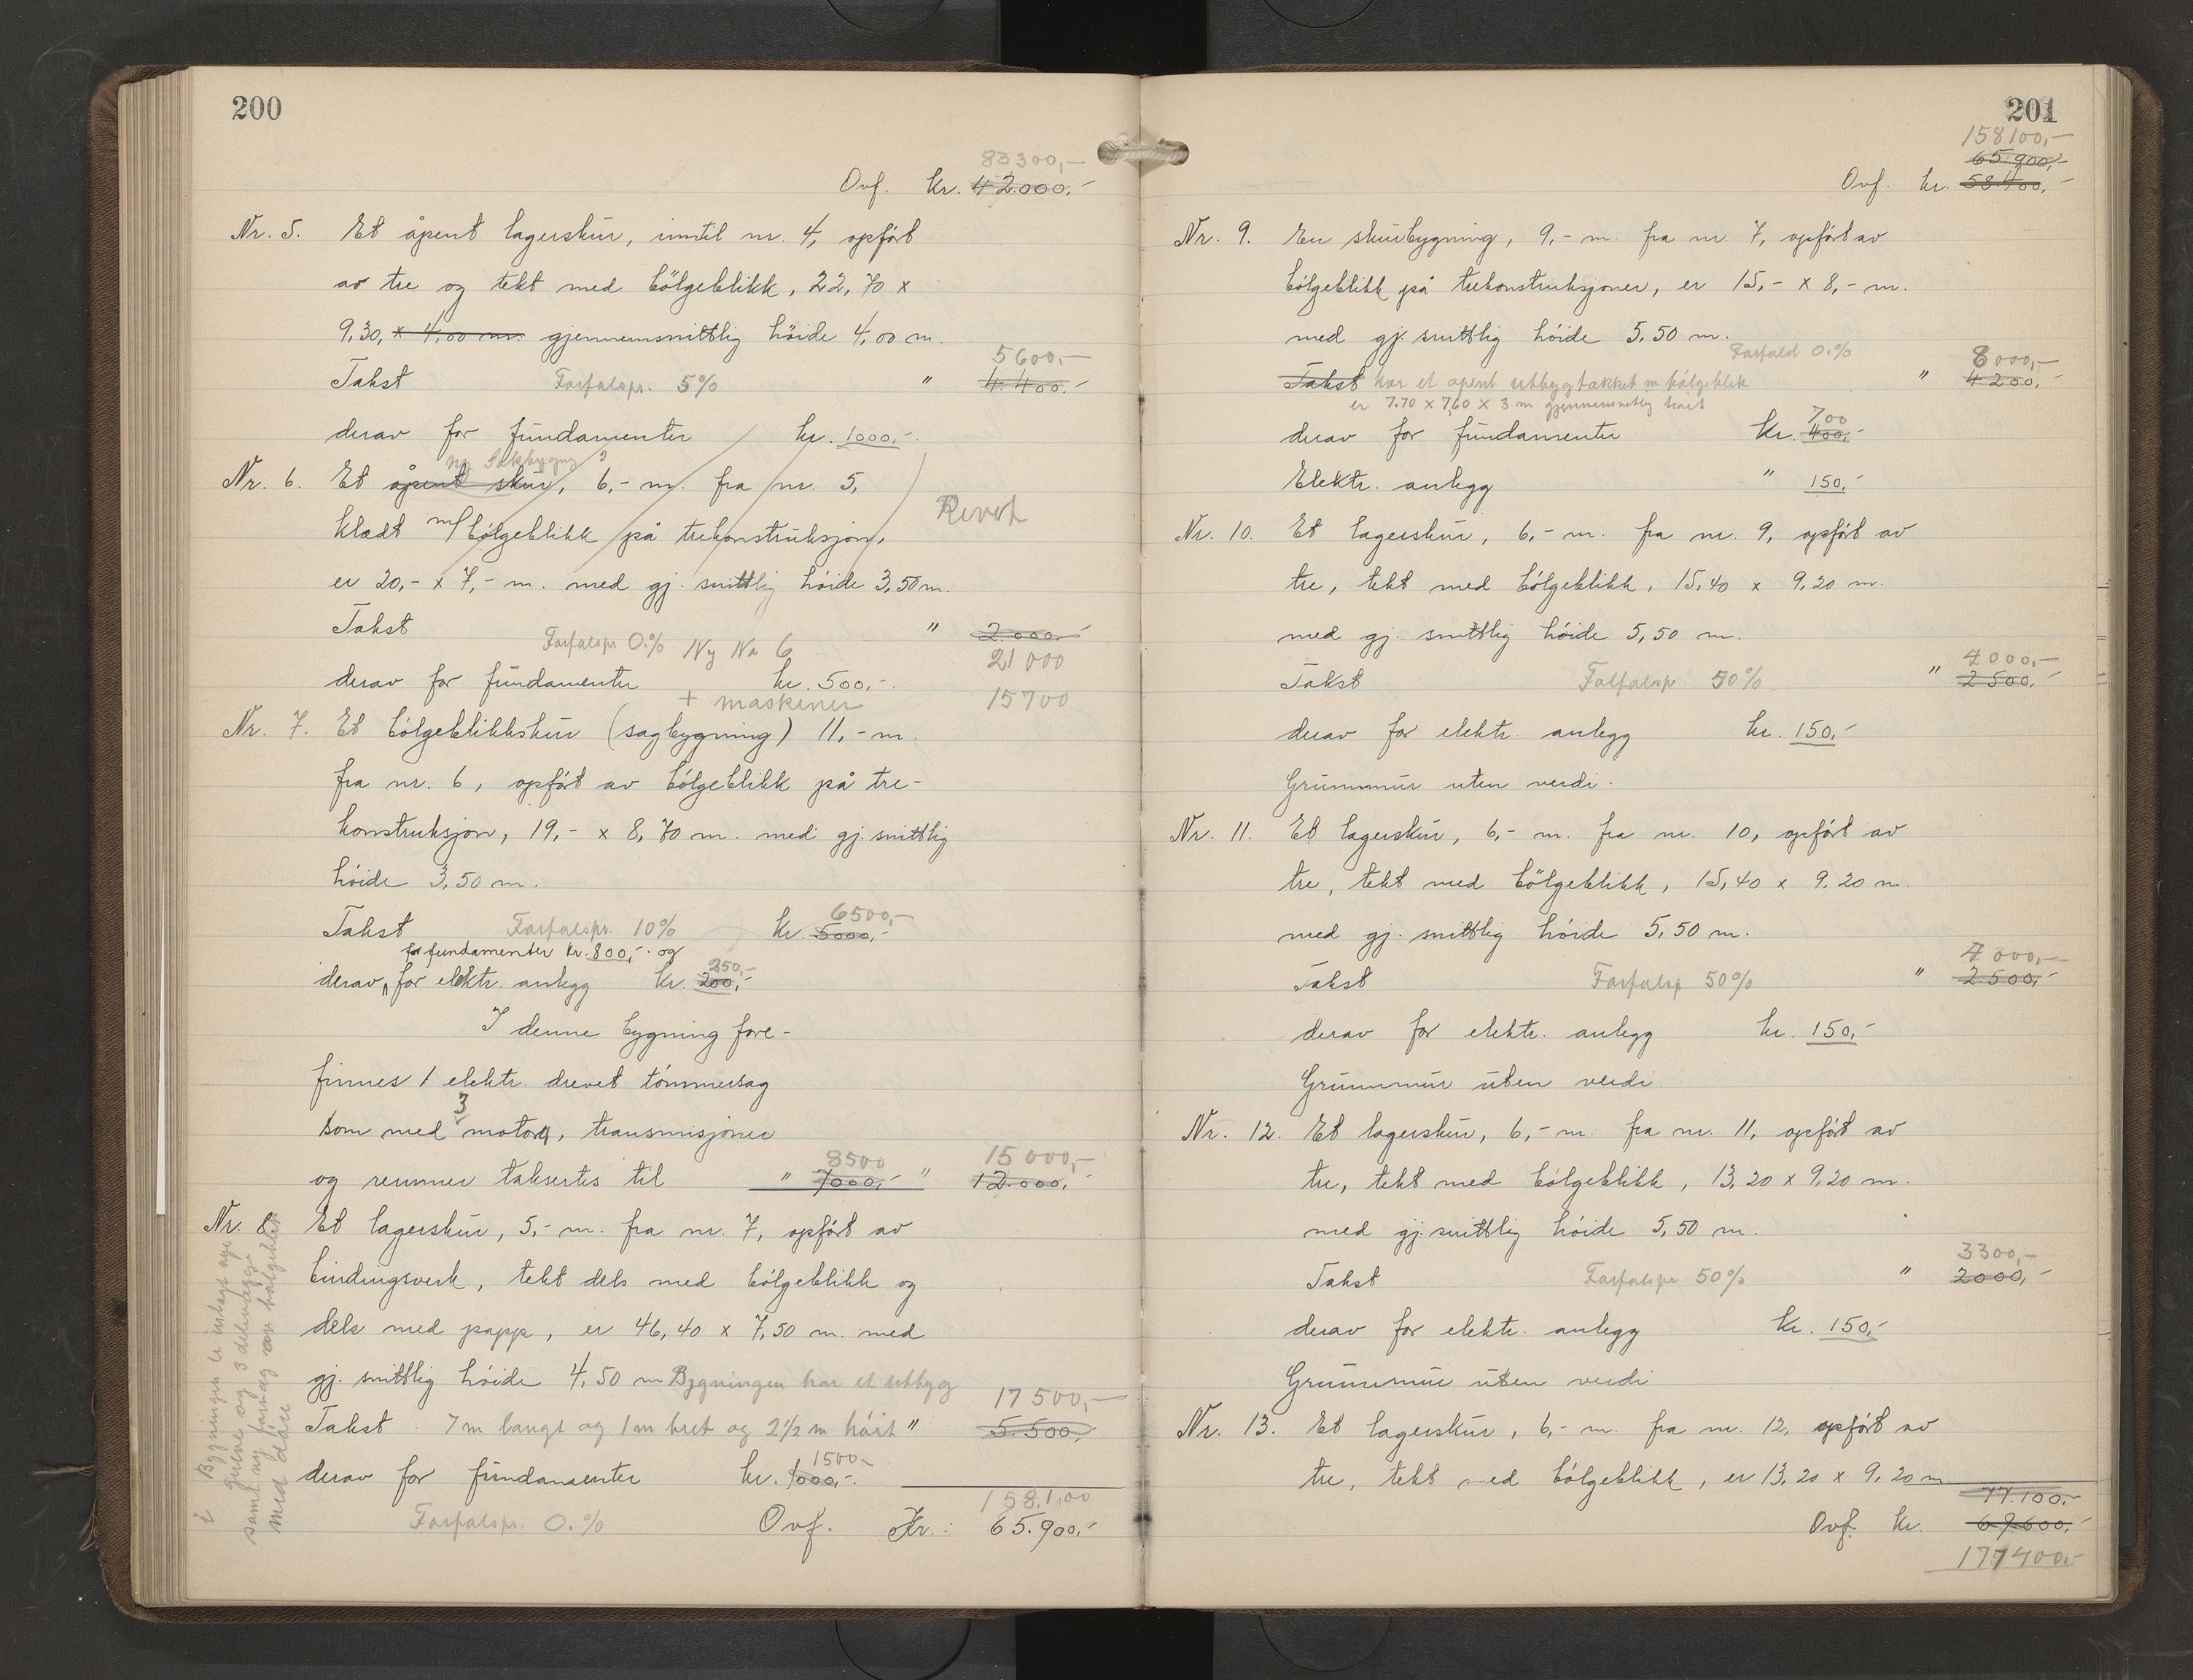 200
83300,-
Ovf. kr. 42.000,-
Nr. 5. Et åpent lagerskur, inntil nr. 4, opført
av tre og tekt med bölgeblikk, 22,70 x
9,30, x 4,00 m. gjennemsnittlig höide 4,00 m.
5600,-
Takst Forfalspr. 5% " 4.400,-
derav for fundamenter kr. 1000,-
ny Sakbygning ?
Nr. 6. Et åpent skur, 6,- m. fra nr. 5,
Revet
klædt m/ bölgeblikk på trekonstruksjon,
er 20,- x 7,- m. med gj. snittlig höide 3,50 m.
Takst " 2.000,-
Forfalspr 0.% Ny No 6 21 000
derav for fundamenter kr. 500,-
+ maskiner 15700
Nr. 7. Et bölgeblikkskur (sagbygning) 11,- m.
fra nr. 6, opført av bölgeblikk på tre-
konstruksjon, 19,- x 8,70 m. med gj. snittlig
höide 3,50 m.
6500,-
Takst Forfalspr. 10% kr. 5000,-
for fundamenter kr. 800,- og
250,-
derav, for elektr. anlegg kr. 200,-
I denne bygning fore-
finnes 1 elektr. drevet tömmersag
3
som med motore, transmisjoner
8500 15000,-
og remmer takseres til " 7000,- " 12.000,-
Nr. 8. Et lagerskur, 5,- m. fra nr. 7, opført av
bindingsverk, tekt dels med bölgeblikk og
dels med papp, er 46,40 x 7,50 m. med
gj. snittlig höide 4,50 m Bygningen har et utbyg
17500,-
Takst 7 m langt og 1 m bret og 2½ m höit " 5.500,-
1500,-
derav for fundamenter kr. 1000,-
158.100
Forfalspr. 0.% Ovf. Kr.: 65.900,-
i Bygningen er inlagt nye
samt ny
med döre
201
158100,-
65.900,-
Ovf. kr. 58.400,-
Nr. 9. En skurbygning, 9,- m. fra nr. 7, opført av
bölgeblikk på trekonstruksjoner, er 15,- x 8,- m.
med gj. snittlig höide 5,50 m.
Forfald 0.% 8000,-
Takst har et åpent utbyg tækket m bölgeblik " 4.200,-
er 7.70 x 7,60 x 3 m gjennemsnitlig höit
700
derav for fundamenter kr. 400,-
Elektr. anlegg " 150,-
Nr. 10. Et lagerskur, 6,- m. fra nr. 9, opført av
tre, tekt med bölgeblikk, 15,40 x 9,20 m.
med gj. snittlig höide 5,50 m.
4000,-
Takst Falfalsp 50% " 2500,-
derav for elektr. anlegg kr. 150,-
Grunnmur uten verdi.
Nr. 11. Et lagerskur, 6,- m. fra nr. 10, opført av
tre, tekt med bölgeblikk, 15,40 x 9,20 m.
med gj. snittlig höide 5,50 m.
4000,-
Takst Forfalsp 50% " 2500,-
derav for elektr. anlegg kr. 150,-
Grunnmur uten verdi
Nr. 12. Et lagerskur, 6,- m. fra nr. 11, opført av
tre, tekt med bölgeblikk, 13,20 x 9,20 m.
med gj. snittlig höide 5,50 m.
3300,-
Takst Forfalspr 50% " 2000,-
derav for elektr. anlegg kr. 150,-
Grunnmur uten verdi
Nr. 13. Et lagerskur, 6,- m. fra nr. 12, opført av
tre, tekt med bölgeblikk, er 13,20 x 9,20 m
77.100,-
Ovf. kr. 69.600,-
177400,-